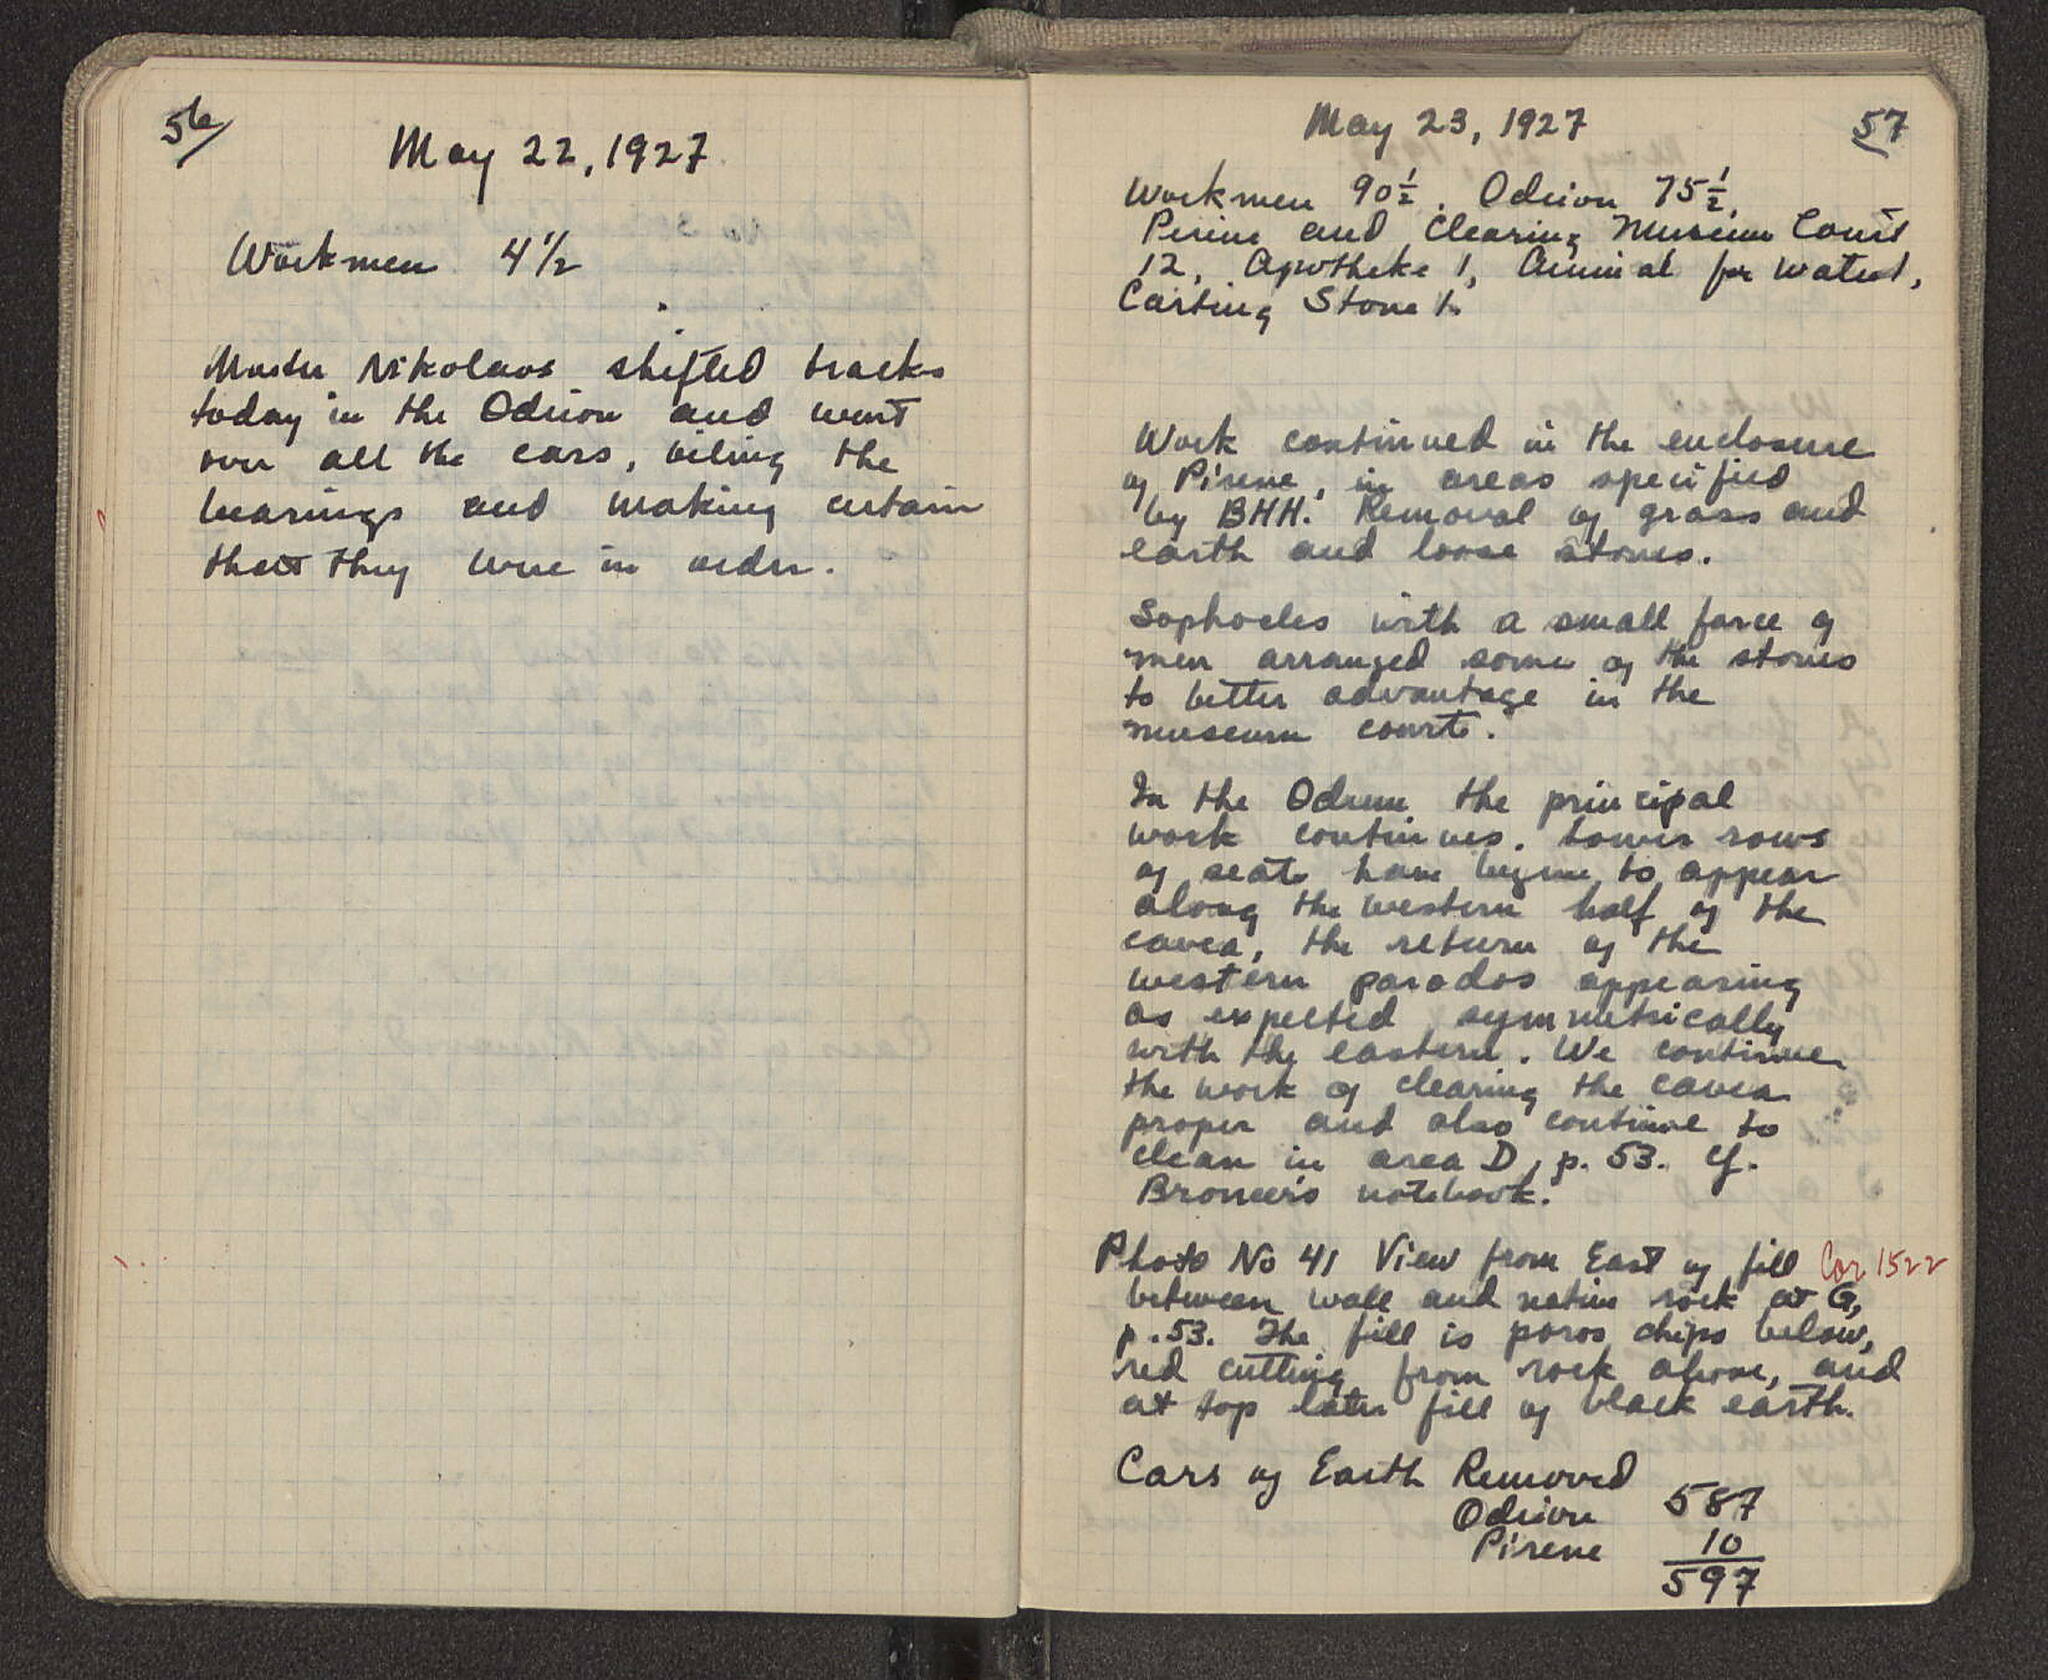 56
May 22, 1927
Workmen 4 1/2
Master Nikolaos shifted tracks
today in the Odeion and went
over all the cars, oiling the
bearings and making certain
that they were in order.
57
May 23, 1927
Workmen 90 1/2. Odeion 75 1/2,
Pirene and Clearing Museum Court
12, Apotheke 1, Animal for water 1,
Carting Stone 1.
Work continued in the enclosure
of Pirene, in areas specified
by BHH. Removal of grass and
earth and loose stones.
Sophocles with a small force of
men arranged some of the stones
to better advantage in the
museum court.
In the Odeion the principal
work continues. Lower rows
of seats have begun to appear
along the western half of the
cavea, the return of the
western parados appearing
as expected symmetrically
with the eastern. We continue
the work of clearing the cavea
proper and also continue to
clean in area D, p. 53. Cf.
Broneer's notebook.
Photo No 41 View from East of fill Cor 1522
between wall and native rock at G,
p. 53. The fill is poros chips below,
red cutting from rock above, and
at top later fill of black earth.
Cars of Earth Removed
Odeion 587
Pirene 10
597